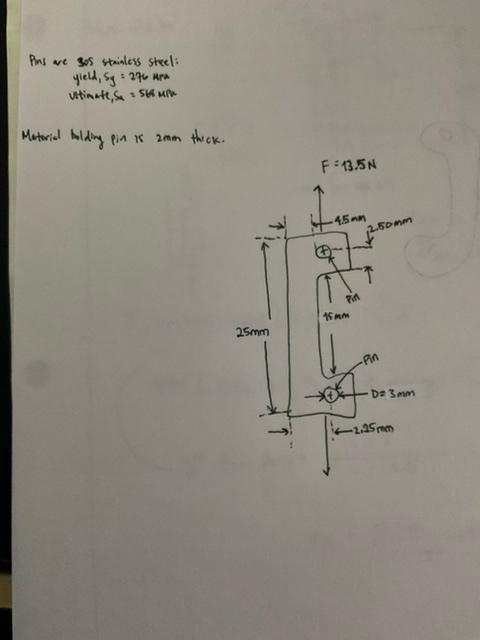 Pins are 305 stainless steel:
yield, Sy = 276 MPa
Ultimate, Su = 568 MPa
Material holding pin is 2mm thick.
F = 13.5N
4.5mm
2.50mm
Pin
15mm
25mm
Pin
D = 3mm
2.25mm